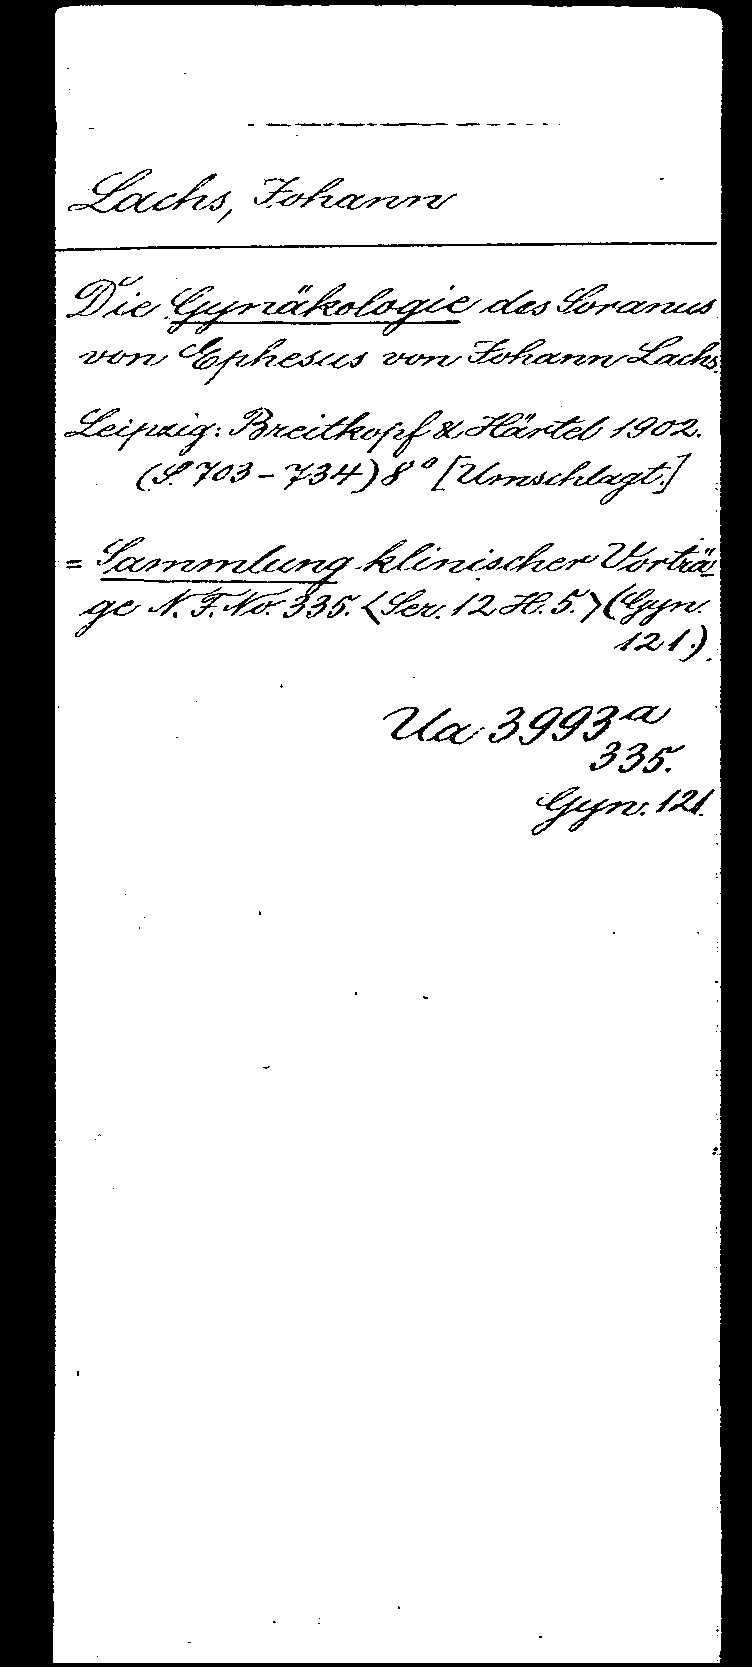 Lachs, Johann
Die Gynäkologie des Soranus
von Ephesus von Johann Lachs.
Leipzig: Breitkopf & Härtel 1902.
(S. 703-734) 8° [Umschlagt.]
= Sammlung klinischer Vorträ-
ge N. F. No. 335. <Ser. 12 H. 5.> (Gyn.
121.)
Ua 3993a
335.
Gyn. 121.